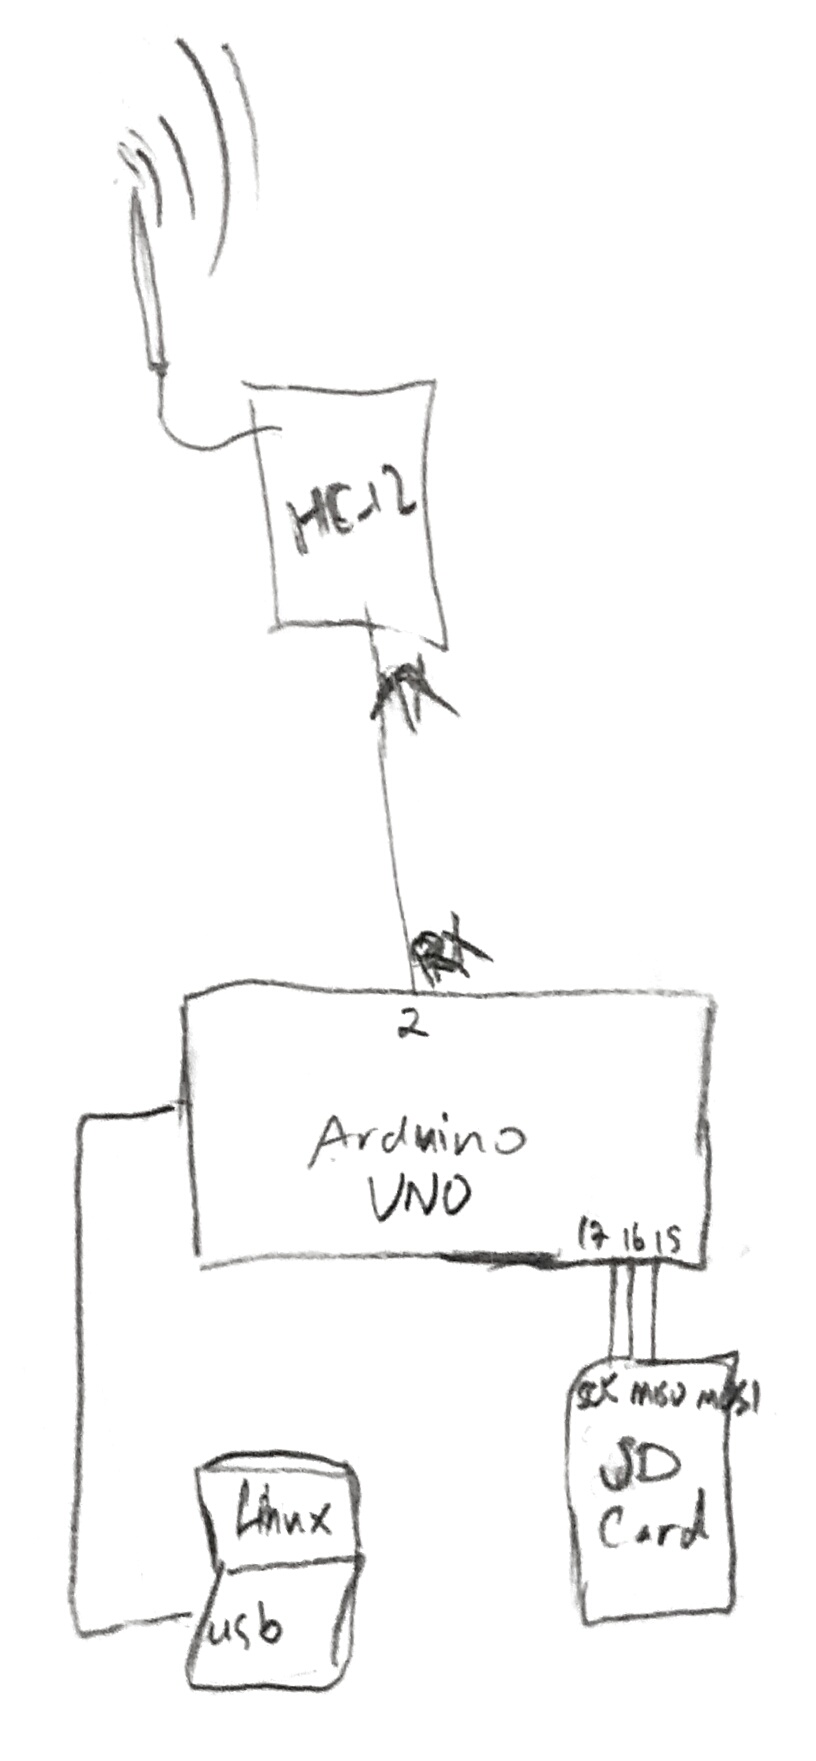 HC-12
TX
RX
2
Arduino
UNO
17 16 15
SCK MISO MOSI
SD
Card
Linux
usb